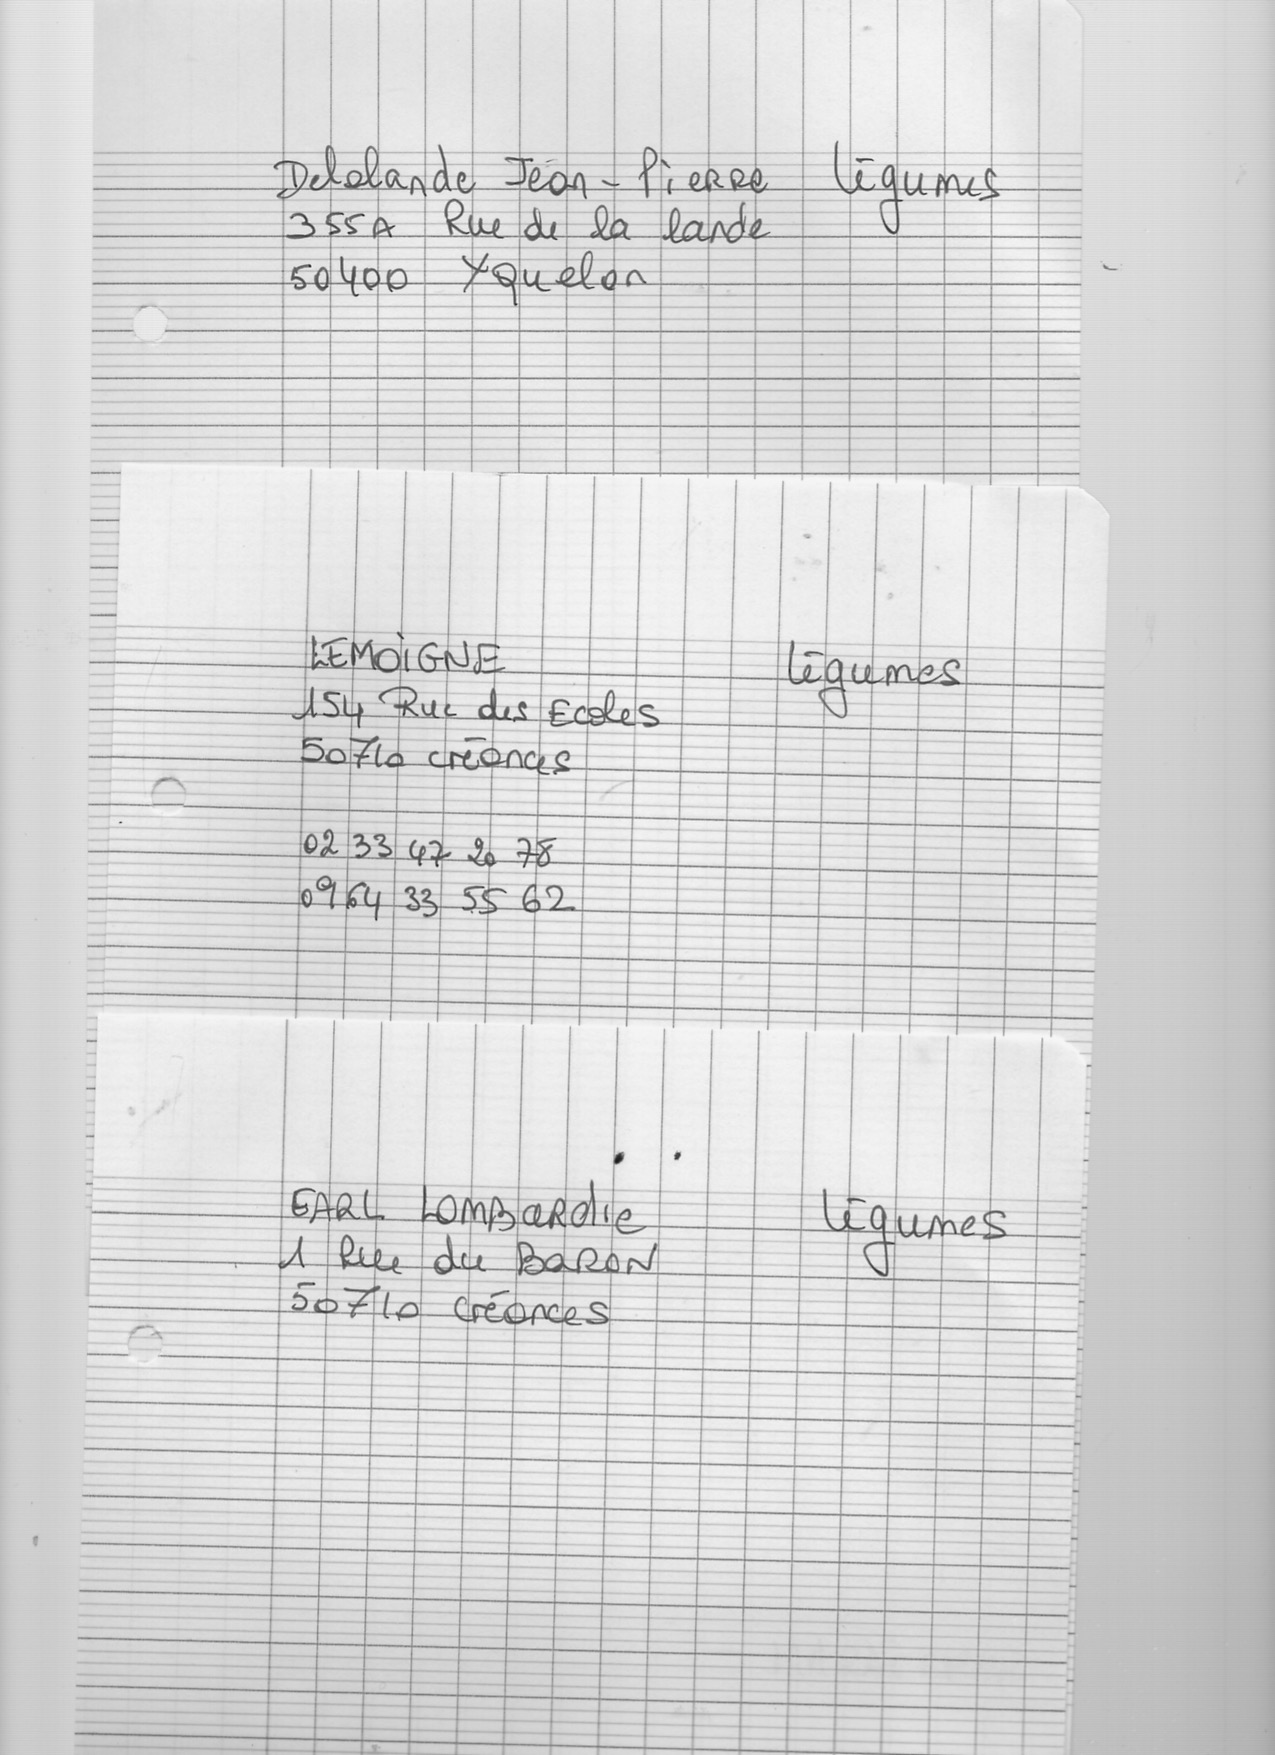 Delalande Jean-Pierre légumes
355A Rue de la lande
50400 Yquelon
LEMOIGNE légumes
154 Rue des Ecoles
50710 créances
02 33 47 20 78
09 64 33 55 62
EARL LOMBARdie légumes
1 Rue du BARON
50710 créances